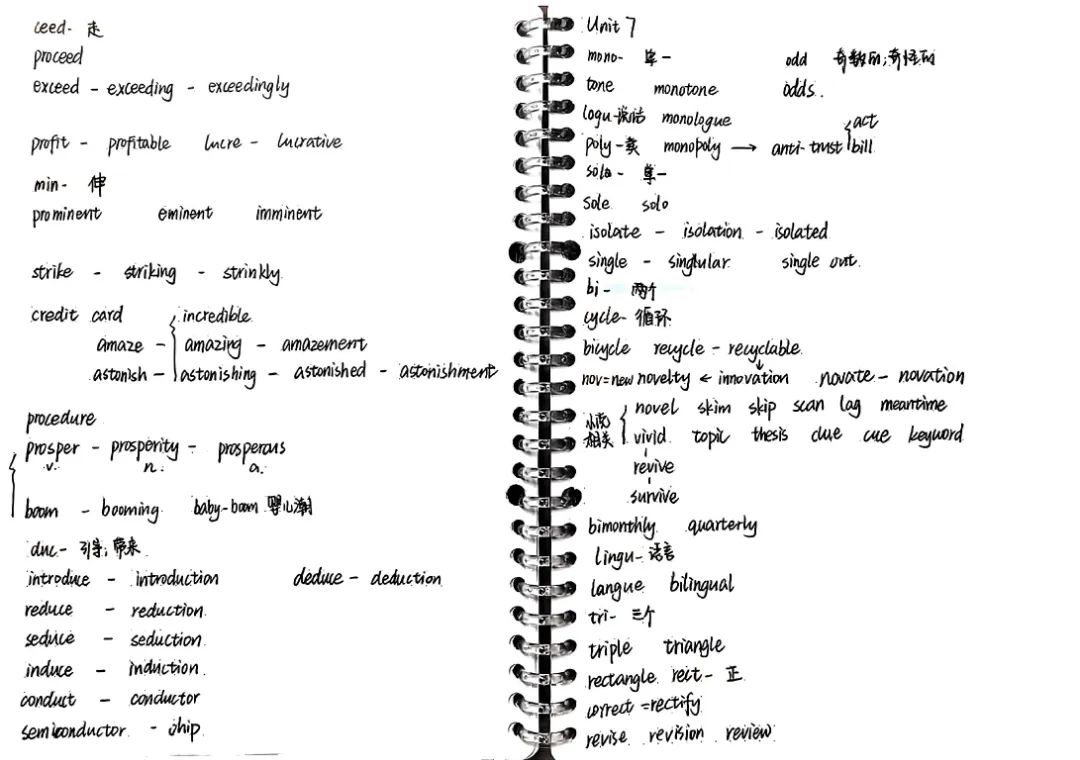 ceed- 走
proceed
exceed - exceeding - exceedingly
profit - profitable lucre - lucrative
min- 伸
prominent eminent imminent
strike - striking - strinkly
credit card incredible
amaze - amazing - amazement
astonish - astonishing - astonished - astonishment
procedure
prosper - prosperity - prosperous
v. n. a.
boom - booming baby-boom 婴儿潮
duc- 引导; 带来
introduce - introduction deduce - deduction
reduce - reduction
seduce - seduction
induce - induction
conduct - conductor
semiconductor - chip
Unit 7
mono- 单一 odd 奇数的; 奇怪的
tone monotone odds
logu-说话 monologue
poly-卖 monopoly → anti-trust { act
bill
solo- 单一
sole solo
isolate - isolation - isolated
single - singlular single out
bi- 两个
cycle- 循环
bicycle recycle - recyclable
nov=new novelty ← innovation novate - novation
小说相关 { novel skim skip scan lag meantime
vivid topic thesis clue cue keyword
revive
survive
bimonthly quarterly
lingu- 语言
langue bilingual
tri- 三个
triple triangle
rectangle rect- 正
correct =rectify
revise revision review